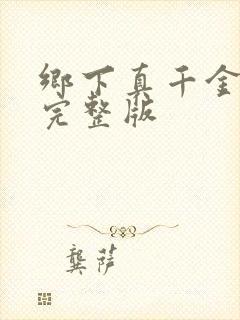 鄉下真千金
完整版
龔薩